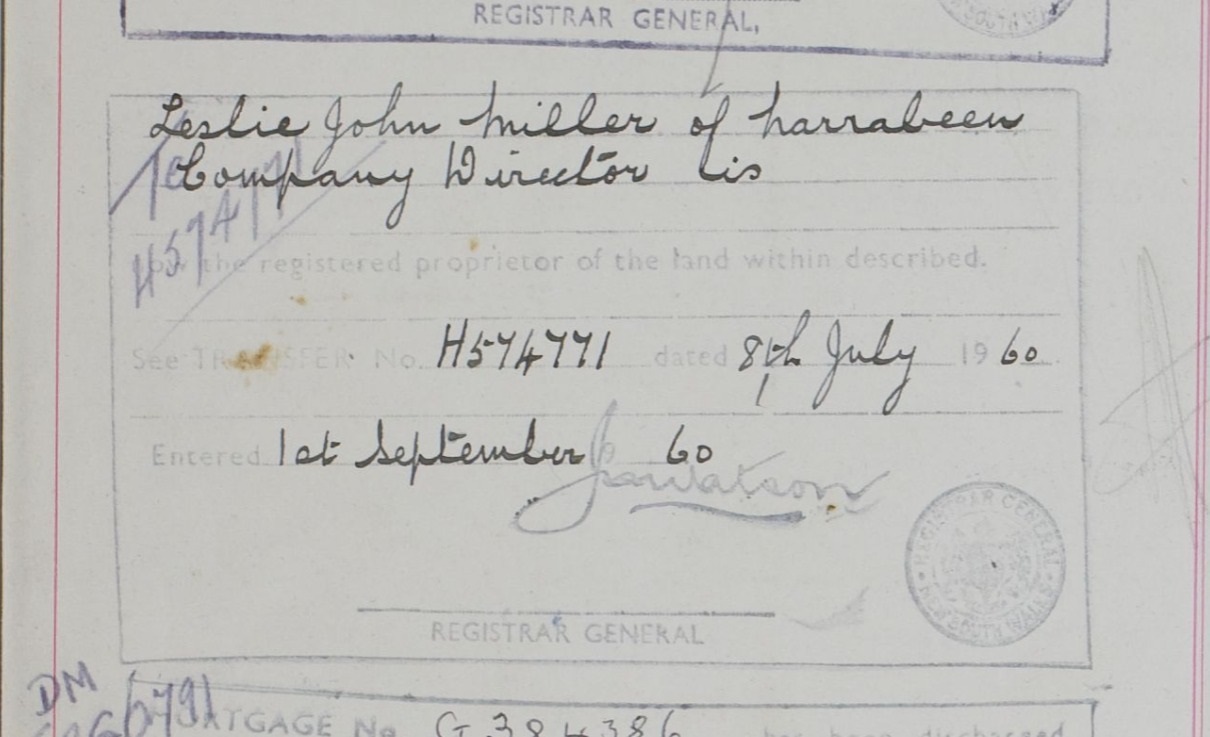 REGISTRAR GENERAL,
Leslie John Miller of Narrabeen
Company Director is
now the registered proprietor of the land within described.
See TRANSFER No. H574771 dated 8th July 1960
Entered 1st September 60
REGISTRAR GENERAL · NEW SOUTH WALES ·
REGISTRAR GENERAL
DM
MORTGAGE No. G384386 has been discharged